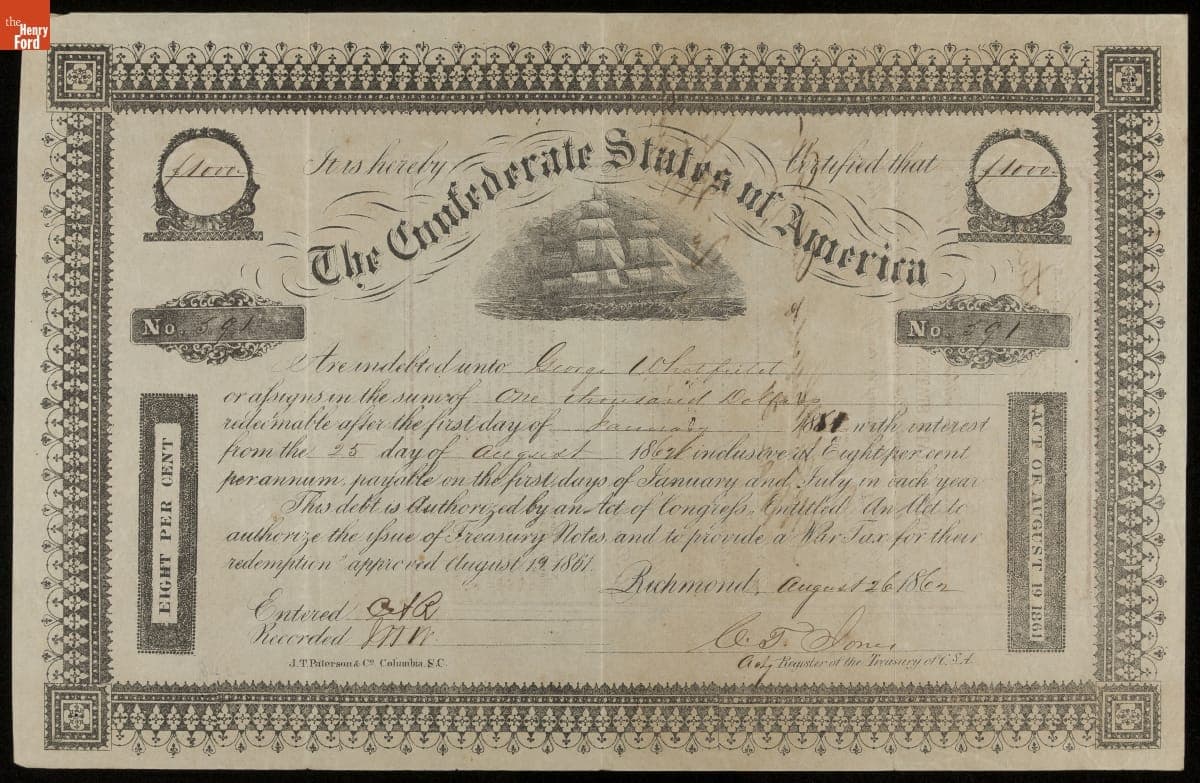 the
Henry
Ford
$1000.
It is hereby
Certified that
$1000.
The Confederate States of America
No. 591
No. 591
Are indebted unto George Whatfield
or assigns in the sum of One thousand Dollars
redeemable after the first day of January 1881 with interest
from the 25 day of August 1862 inclusive at Eight per cent
per annum, payable on the first days of January and July in each year
This debt is Authorized by an Act of Congress, Entitled "An Act to
authorize the issue of Treasury Notes, and to provide a War Tax for their
redemption" approved August 19, 1861.
EIGHT PER CENT
ACT OF AUGUST 19 1861
Richmond, August 26 1862
Entered
Recorded
C. T. Jones
J. T. Paterson & Co. Columbia, S.C.
Actg Register of the Treasury of C.S.A.